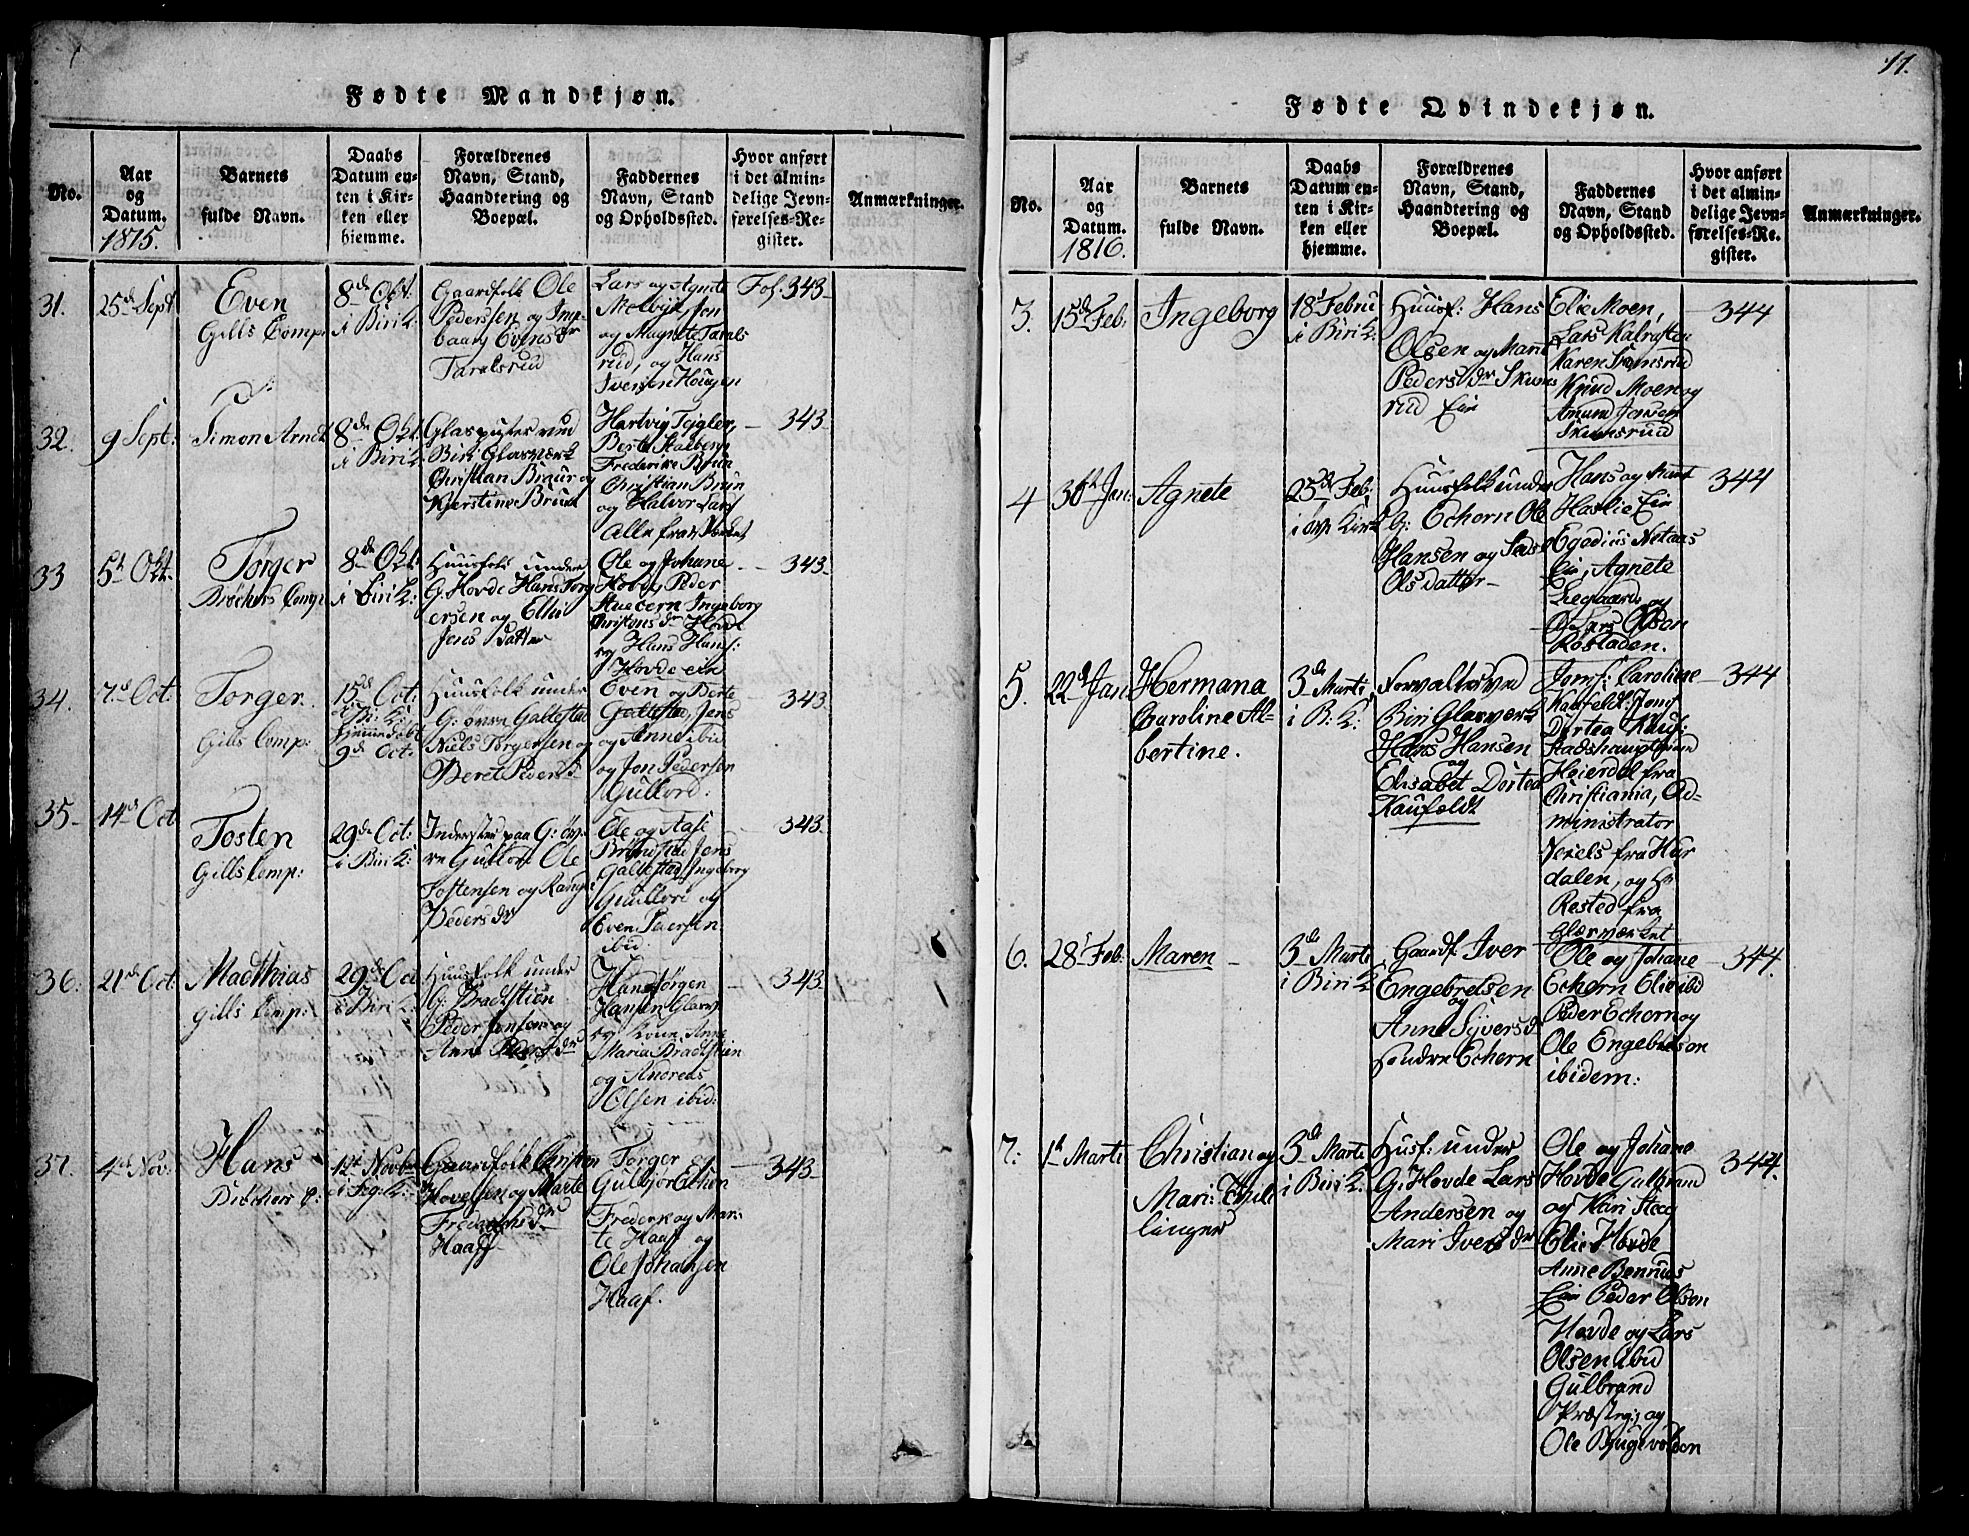 Fødte Mandkjøn.
No.
Aar
og
Datum.
1815.
Barnets
fulde Navn.
Daabs
Datum en-
ten i Kir-
ken eller
hjemme.
Forældrenes
Navn, Stand,
Haandtering og
Boepæl.
Faddernes
Navn, Stand
og Opholdssted.
Hvor anført
i det almin-
delige Jevn-
førelses-Re-
gister.
Anmærkninger.
31.
25de Sept
Even
Gills Comp:
8de Okt:
i Biri K:
Gaardfolk Ole
Pederssen og Inge
baarg Evens dr
Taralsrud
Lars og Agnete
Melbye, Jon
og Magnete Tarals
rud, og Hans
Iversen Hougen
Fol. 343
32.
9 Sept:
Simon Arndt
8de Okt.
i Biri K:
Glaspuster ved
Biri Glasværk
Christian Bruun og
Kjerstine Bruun
Hartvig Tejgler,
Berte Stalberg
Frederike Bruun
Christian Brun
og Halvor Lars
Alle fra Værket
343
33
5th Okt.
Torger
Brochers Comp
8de Okt:
i Biri K:
Huusfolk under
G. Hovde Hans Torg
ersen og Elli
Jens Datter
Ole og Johane
Hovde, Peder
Ingeborg
Christens dr Hovde
og Hans Hans:
Hovde eie
343
34.
7de Oct.
Torger
Gills Comp:
15de Oct.
i Bi: K:
hjemmedøbt
9de Oct.
Huusfolk under
G: øvre Gallestad
Niels Torgersen og
Beret Peders d
Even og Berte
Gallestad, Jens
og Anne ibid
og Jon Pedersen
Gullord.
343
35
14de Oct
Tosten
Gills Comp:
29de Oct:
i Biri K:
Inderster paa G: øv-
re Gullord Ole
Tostensen og Rangn:
Peders dr
Ole og Aase
Brundstad Jens
Gallestad, Ingeborg
Gullord og
Even Pedersen
ibid:
343
36.
21de Oct
Madthias
Gills Comp:
29de Oct
i Biri K:
Huusfolk under
G. Bradtstien
Peder Jonsen og
Anne Peders dr
Hans Jørgen
Hansen Glarv:
og Kone Anne
Maria Bradtstien
og Andreas
Olsen ibid:
343
37.
4de Nov:
Hans
12t Novbr
Gaardfolk Christen
Hovelsen og Marte
Frederichs dr
Haaff
Torger og
Gulbjør Echern
Frederk og Mar:
te Haaf og
Ole Johansen
Haaf.
343
11.
Fødte Qvindekjøn.
No.
Aar
og
Datum.
1816.
Barnets
fulde Navn.
Daabs
Datum en-
ten i Kir-
ken eller
hjemme.
Forældrenes
Navn, Stand,
Haandtering og
Boepæl.
Faddernes
Navn, Stand
og Opholdssted.
Hvor anført
i det almin-
delige Jevn-
førelses-Re-
gister.
Anmærkninger.
3.
15de Feb:
Ingeborg
18 Febru
i Biri K:
Huusf: Hans
Olsen og Marit
Peders dr Skums
rud Eie
Elie Moen,
Lars Kalrasten
Karen Skumsrud
Knud Moen og
Amund Jensen
Skumsrud
344
4
30te Jan:
Agnete
25de Feb:
i Kirk
Huusfolk under
G: Echern Ole
Hansen og
Olsdatter
Hans og Marit
Haslie Eie
Egedius
Eie, Agnete
Liegaard og
Lars Olsen
Rosladen.
344
5.
22de Jan
Hermana
Caroline Al-
bertine.
3de Marti
i B: K:
Forvalter ved
Biri Glasværk
Hans Hansen
og
Elisabet Dortea
Kaufeldt
Jomf: Caroline
Kaufeldt, Jomf
Dortea Kauf:
Stadshauptmand
Heierdal fra
Christiania, Ad-
ministrator
fra Hur
dalen, og Hr
Rested fra
Glasværket
344
6.
28de Feb:
Maren
3de Marti
i Biri K
Gaardf. Iver
Engebretsen
og
Anne Syvers d
søndre Echern
Ole og Johane
Echern Elie ibid
Peder Echern og
Ole Engebretsen
ibidem:
344.
7:
1te Marti
Christian og
Mari: Tvil
linger
3de Marti
i Biri K:
Husf: under
G: Hovde Lars
Andersen og
Mari Ivers dr
Ole og Johane
Hovde Gulbrand
og Kari Steeg
Elie Hovde
Anne Bennus
Eie Peder Olsen
Hovde og Lars
Olsen ibid
Gulbrand
Præsteg: og
Ole Bjugevolden
344.